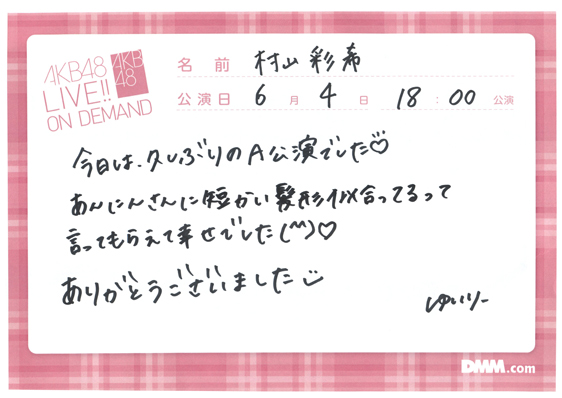 AKB48
LIVE!!
ON DEMAND
AKB
48
名前 村山彩希
公演日 6月4日 18:00公演
今日は、久しぶりのA公演でした♡
あんにんさんに短かい髪形似合ってるって
言ってもらえて幸せでした(^^)♡
ありがとうございました
ゆいりー
DMM.com